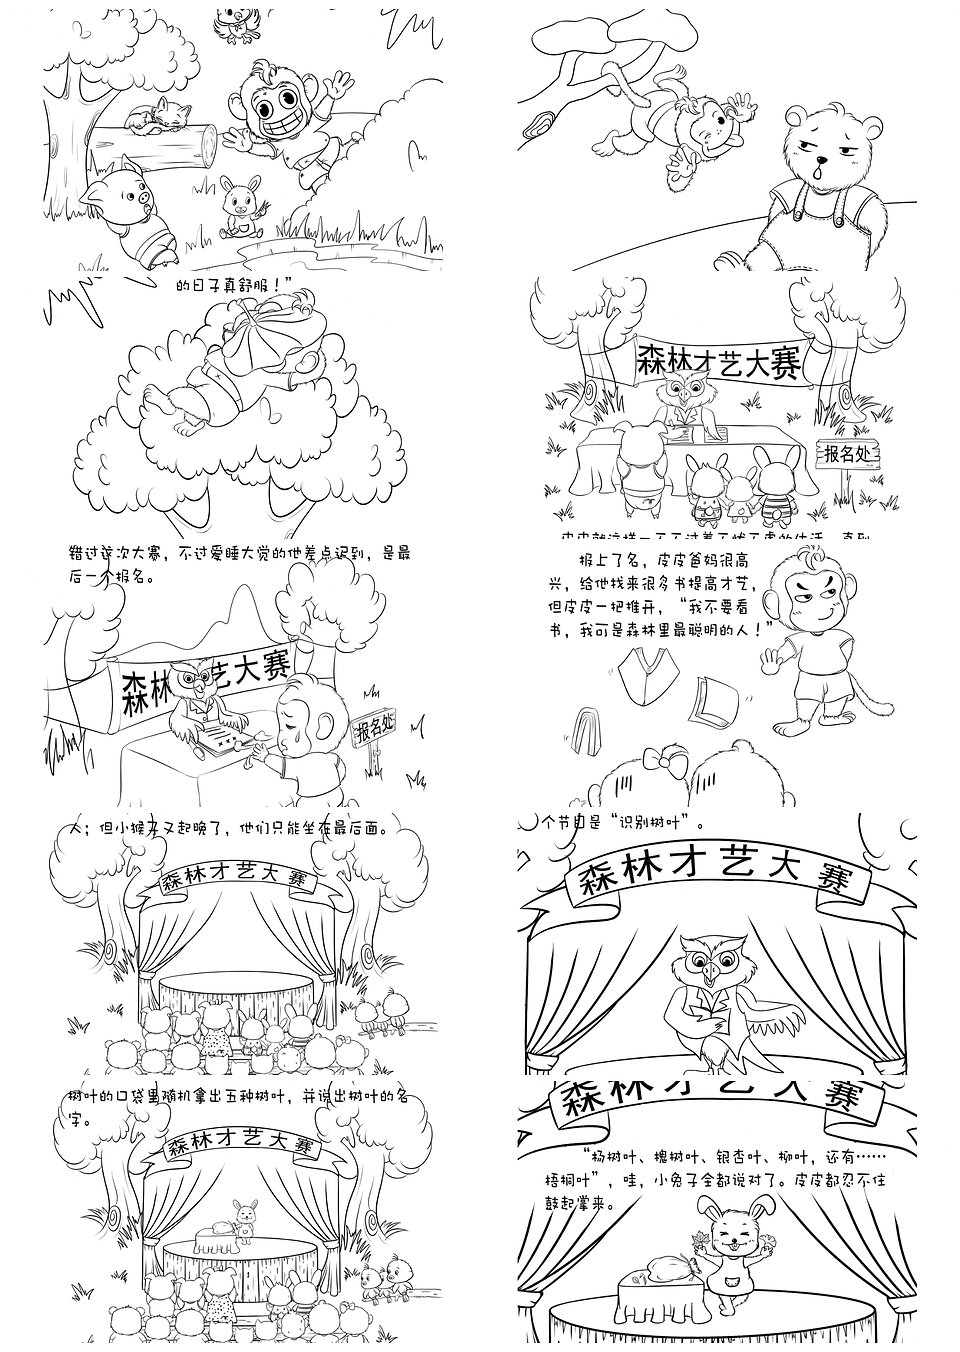 的日子真舒服！”
森林才艺大赛
报名处
错过这次大赛，不过爱睡大觉的他差点迟到，是最
后一个报名。
森林艺大赛
报名处
报上了名，皮皮爸妈很高
兴，给他找来很多书提高才艺，
但皮皮一把推开，“我不要看
书，我可是森林里最聪明的人！”
人；但小猴子又起晚了，他们只能坐在最后面。
森林才艺大赛
个节目是“识别树叶”。
森林才艺大赛
树叶的口袋里随机拿出五种树叶，并说出树叶的名
字。
森林才艺大赛
森林才艺大赛
“杨树叶、槐树叶、银杏叶、柳叶，还有……
梧桐叶”，哇，小兔子全都说对了。皮皮都忍不住
鼓起掌来。